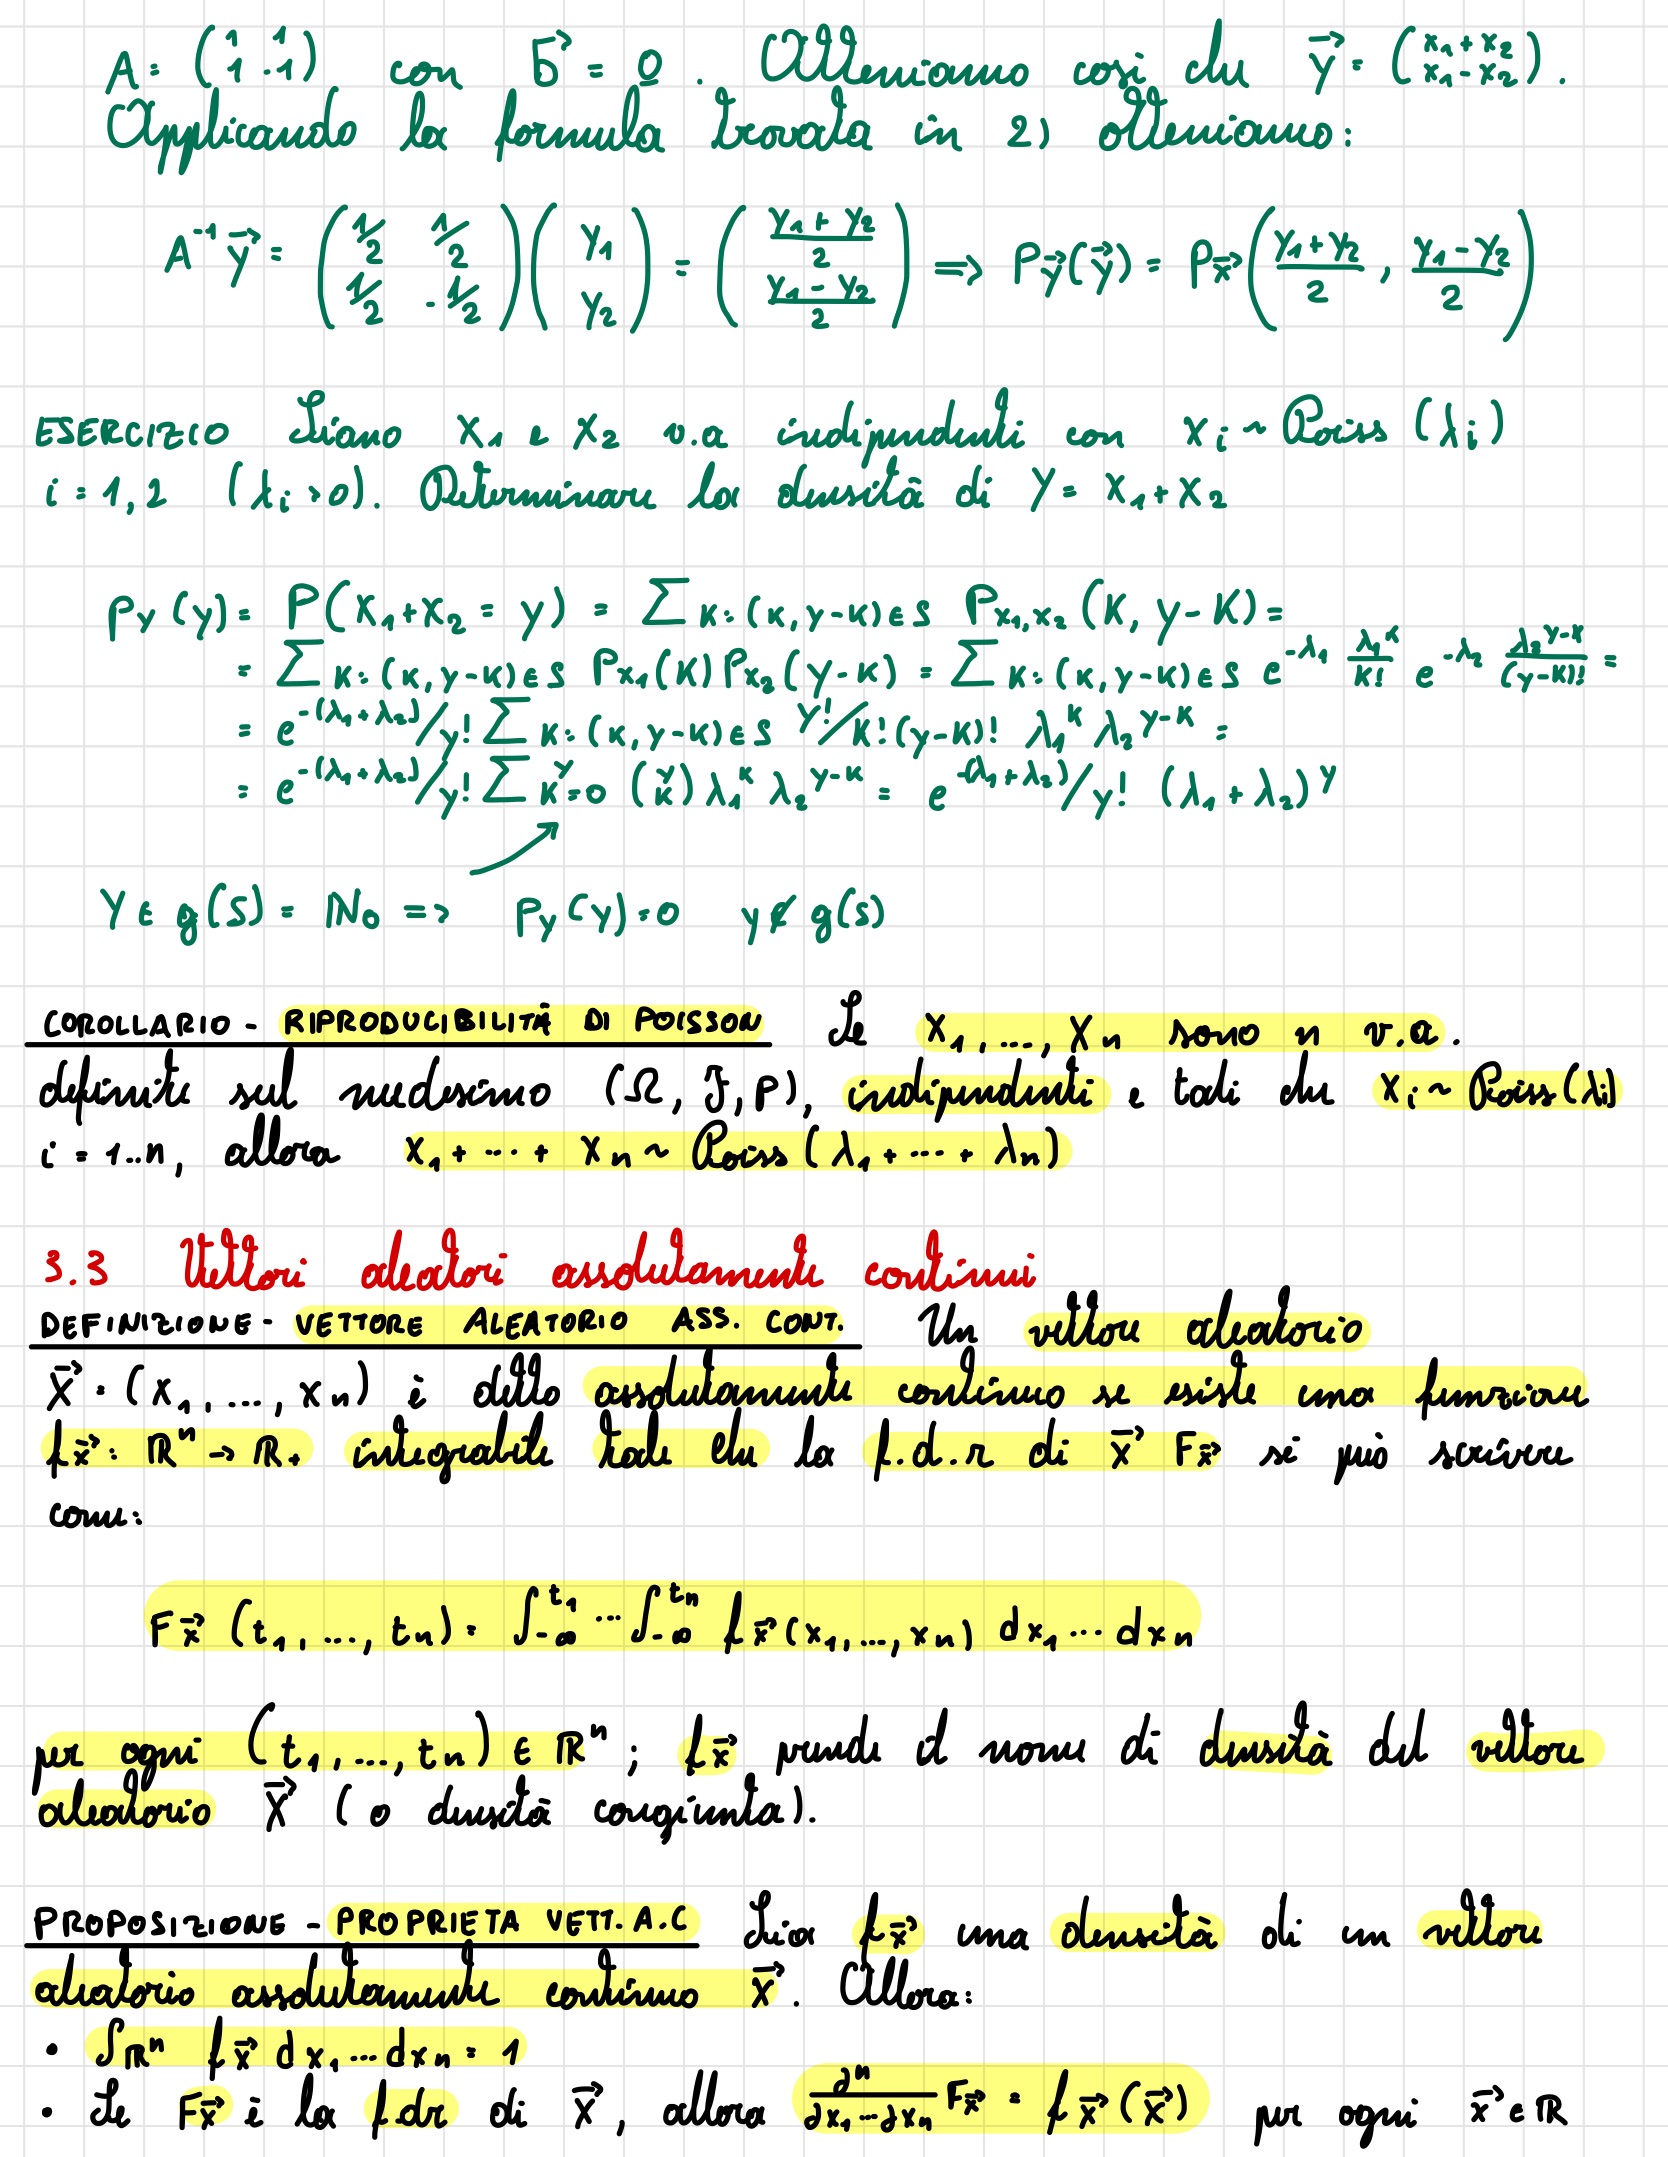 A = (1 1 1 -1) con b⃗ = 0. Otteniamo così che y⃗ = (x₁+x₂ x₁-x₂).
Applicando la formula trovata in 2) otteniamo:
A⁻¹ y⃗ = (1/2 1/2 1/2 -1/2)(y₁ y₂) = ((y₁+y₂)/2 (y₁-y₂)/2) ⟹ P_y⃗(y⃗) = P_x⃗((y₁+y₂)/2, (y₁-y₂)/2)
ESERCIZIO Siano X₁ e X₂ v.a indipendenti con Xᵢ ~ Poiss (λᵢ)
i = 1,2 (λᵢ > 0). Determinare la densità di Y = X₁+X₂
P_Y(y) = P(X₁+X₂ = y) = ∑ K:(K,y-K)∈S P_X₁,X₂(K, y-K) =
= ∑ K:(K,y-K)∈S P_X₁(K) P_X₂(y-K) = ∑ K:(K,y-K)∈S e^-λ₁ λ₁^K/K! e^-λ₂ λ₂^(y-K)/(y-K)! =
= e^-(λ₁+λ₂)/y! ∑ K:(K,y-K)∈S y!/K!(y-K)! λ₁^K λ₂^(y-K) =
= e^-(λ₁+λ₂)/y! ∑ K=0^y (y K) λ₁^K λ₂^(y-K) = e^-(λ₁+λ₂)/y! (λ₁+λ₂)^y
Y ∈ g(S) = ℕ₀ => P_Y(y)=0 y ∉ g(S)
COROLLARIO - RIPRODUCIBILITÀ DI POISSON Se X₁, ..., Xn sono n v.a.
definite sul medesimo (Ω, F, P), indipendenti e tali che Xᵢ ~ Poiss(λᵢ)
i = 1..n, allora X₁ + ... + Xn ~ Poiss (λ₁ + ... + λn)
3.3 Vettori aleatori assolutamente continui
DEFINIZIONE - VETTORE ALEATORIO ASS. CONT. Un vettore aleatorio
X⃗ = (X₁, ..., Xn) è detto assolutamente continuo se esiste una funzione
f_x⃗ : ℝⁿ → ℝ₊ integrabile tale che la f.d.r di X⃗ F_x⃗ si può scrivere
come:
F_x⃗ (t₁, ..., tn) = ∫_-∞^t₁ ... ∫_-∞^tn f_x⃗(x₁, ..., xn) dx₁ ... dxn
per ogni (t₁, ..., tn) ∈ ℝⁿ ; f_x⃗ prende il nome di densità del vettore
aleatorio X⃗ (o densità congiunta).
PROPOSIZIONE - PROPRIETA VETT. A.C Sia f_x⃗ una densità di un vettore
aleatorio assolutamente continuo X⃗. Allora:
• ∫ℝⁿ f_x⃗ dx₁...dxn = 1
• Se F_x⃗ è la f.dr di X⃗, allora ∂ⁿ/∂x₁...∂xn F_x⃗ = f_x⃗(x⃗) per ogni x⃗ ∈ ℝ